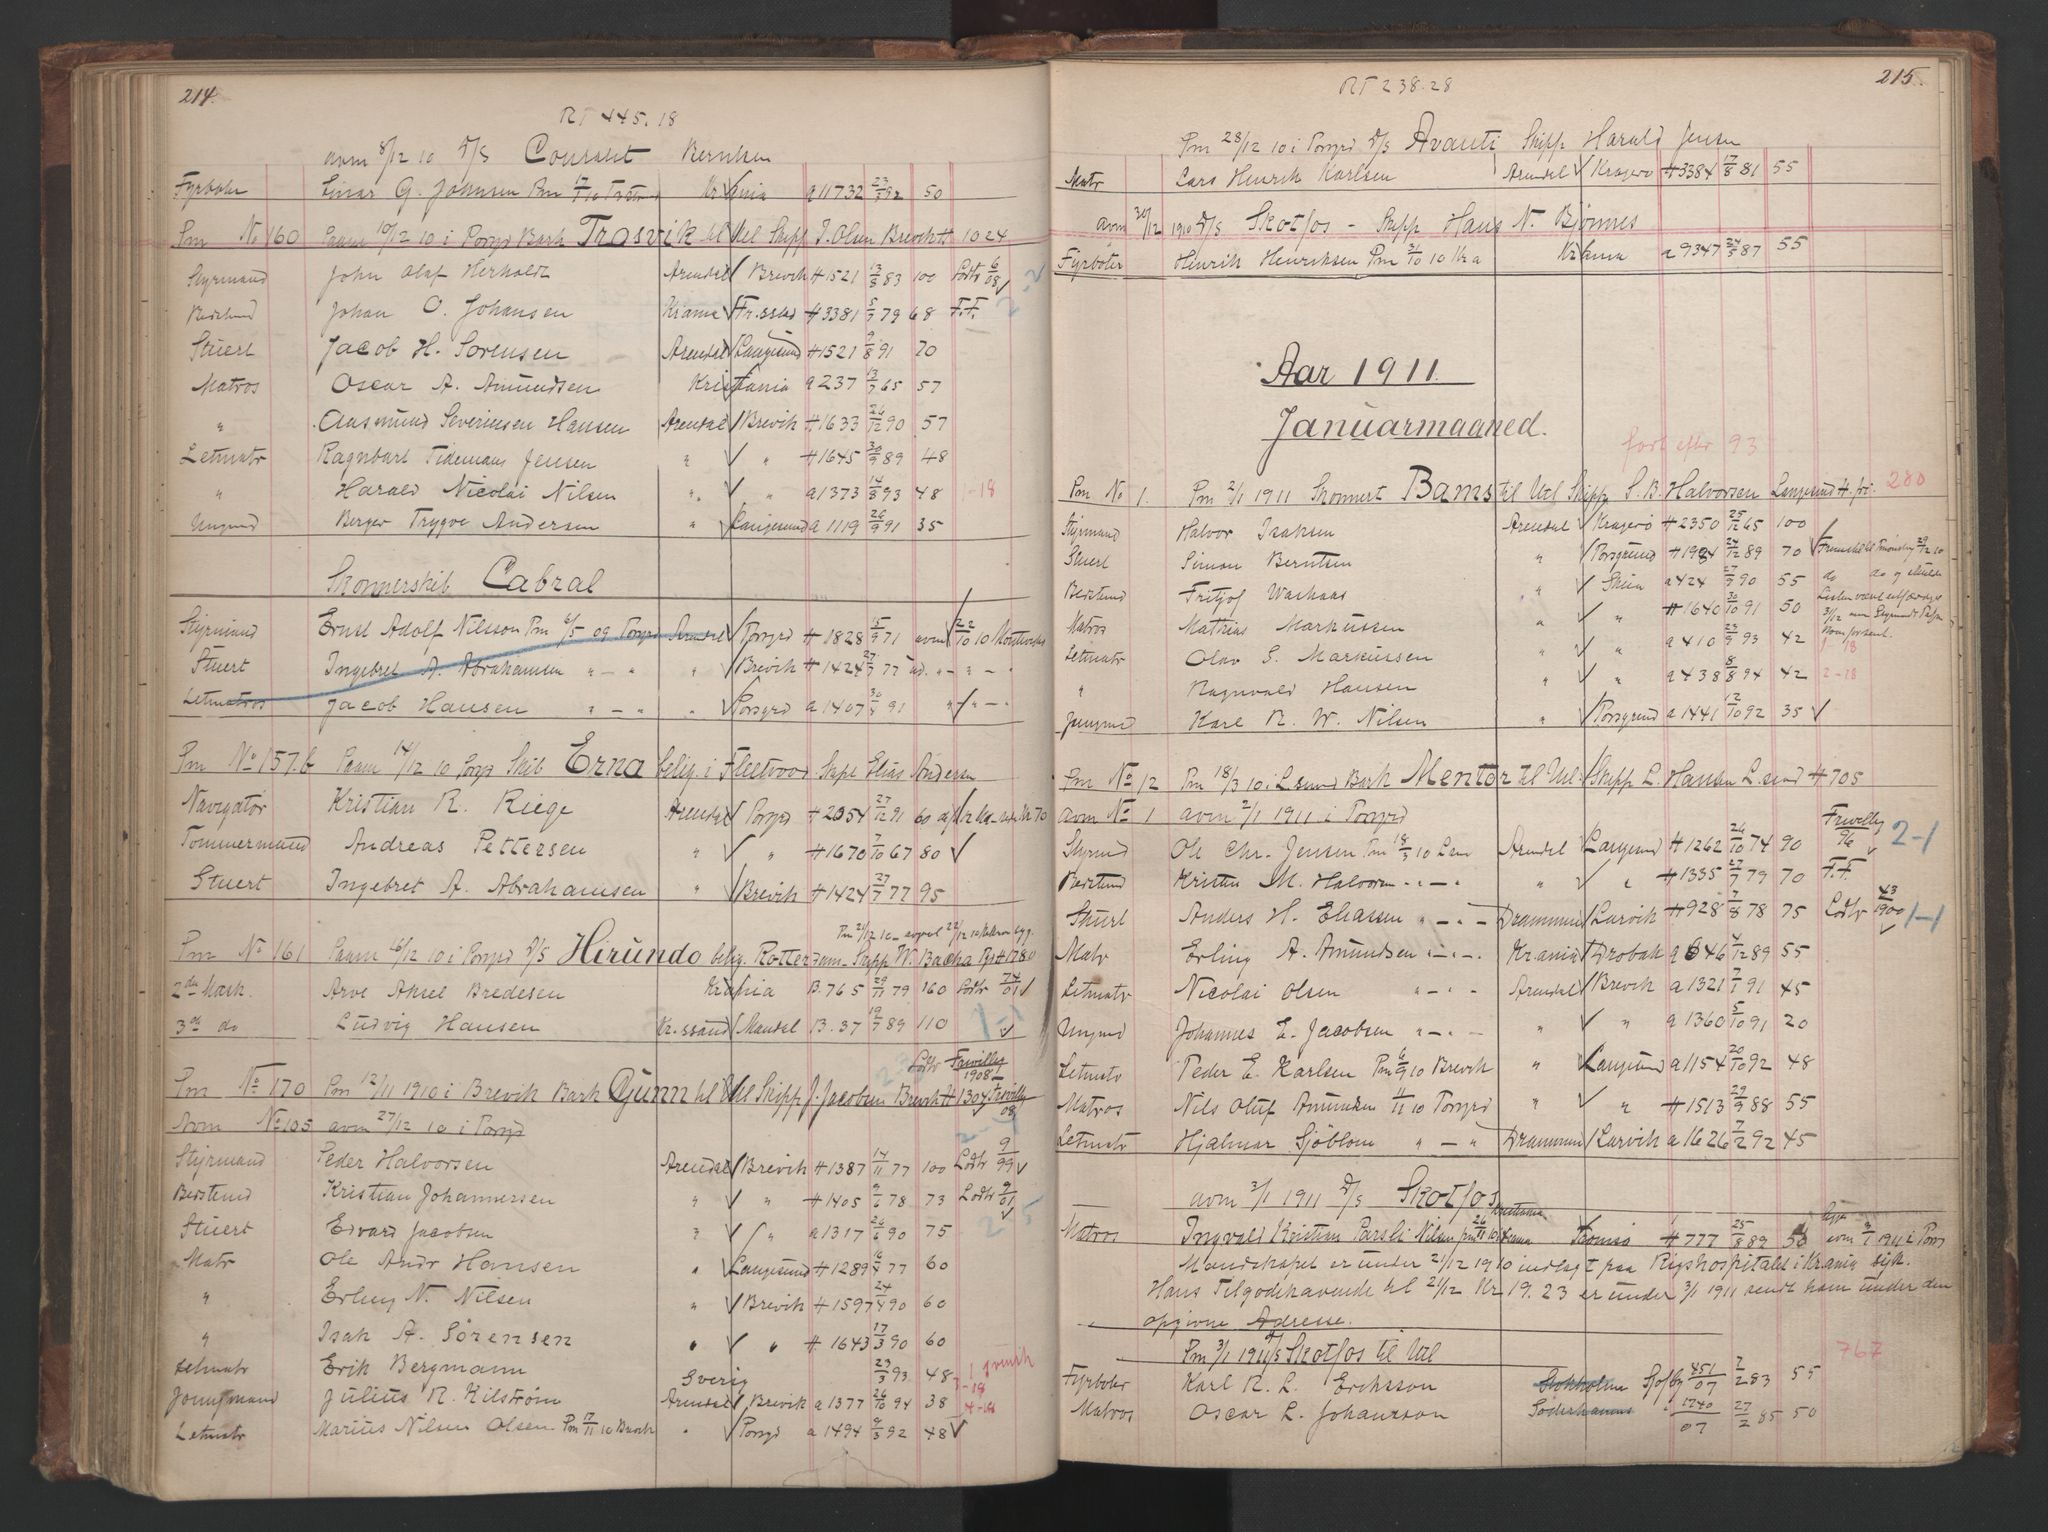 214.
RT 445.18
avm 8/12 10 D/S Bernhsen
Fyrbøter Einar G. Johnsen Pm 17/ 10 Kr ania a 11732 23/ 92 50
Pm No 160 Paam 10/12 10 i Porsgrd Bark Trosvik til Utl Skipp J. Olsen Brevik H 1024
Styrmand John Olaf Herholdt Arendal Brevik H 1521 13/8 83 100 Lodtr 6/08
Bestmd Johan O. Johansen Krania Fr.stad H 3381 5/7 79 68 F.F. 2-2
Stuert Jacob H. Sørensen Arendal Langesund H 1521 9/8 91 70
Matros Oscar A. Amundsen Kristiania a 237 13/7 65 57
" Aasmund Severinsen Hansen Arendal Brevik H 1633 26/12 90 57
Letmatr Ragnvarl Tidemans Jensen " " H 1645 30/9 89 48
" Harald Nicolai Nilsen " " a 1373 14/8 93 48 1-18
Ungmd Berger Trygve Andersen " Langesund a 1119 26/9 91 35
Skonnerskib Cabral
Styrmand Ernst Adolf Nilsson Pm 6/5 09 Porsgrd Arendal Porsgrd H 1828 15/9 71 avm 22/10 10
Stuert Ingebret A. Abrahamsen " — " " Brevik H 1424 27/7 77 " — " —
Letmatros Jacob Hansen " — " " Porsgrd a 1407 30/4 91 " — " —
Pm No 157.b Paam 14/12 10 Porsgr Skib Erna belig. i Fleetvood Skipp Elias Andersen
Navigatør Kristian R. Riege Arendal Porsgrd H 2054 27/12 91 60
Tømmermand Andreas Pettersen " " H 1670 7/10 67 80
Stuert Ingebret A. Abrahamsen " Brevik H 1424 27/7 77 95
Pm 21/12 10 22/12 10
Pm No 161 Paam 16/12 10 i Porsgrd D/S Hirundo belig. Rotterdam Skipp W. Bache Pgr H 1780
2den Mask. Arve Aksel Bredesen Krania B. 765 29/11 79 160 Lodtr 74/01
3die do Ludvig Hansen Kr.ssand Mandal B. 37 19/7 89 110 1-1
Lodtr Frivillig 1908
Pm No 170 Pm 12/11 1910 i Brevik Bark Gunn til Utl Skipp J. Jacobsen Brevik H 1304 Frivillig 08
Avm No 105 avm 27/12 10 i Porsgrd
Styrmand Peder Halvorsen Arendal Brevik H 1387 14/11 77 100 Lodtr 9/99
Bestmd Kristian Johannessen " " H 1405 9/6 78 73 Lodtr 9/01
Stuert Edvard Jacobsen " " a 1317 26/6 90 75 2-5
Matr Ole Andr Hansen " Langesund H 1289 16/4 77 60
" Erling N. Nilsen " Brevik H 1597 24/4 90 60
" Isak A. Sørensen " " H 1643 17/3 90 60
Letmatr Erik Bergmann Sverig 23/3 93 48
Jungmand Julius R. Kilstrøm Arendal Brevik a 1377 26/10 94 38
Letmatr Marius Nilsen Olsen Pm 17/11 10 Brevik " Porsgrd a 1494 9/3 92 48
215.
RT 238.28
Pm 28/12 10 i Porsgrd D/S Avanti Skipp Harald Jensen
Matr Lars Henrik Karlsen Arendal Kragerø H 3384 17/8 81 55
avm 30/12 1910 D/S Skotfos - Skipp Hans N. Bjønnes
Fyrbøter Henrik Henriksen Pm 31/10 10 Kra Krania a 9347 24/5 87 55
Aar 1911.
Januarmaaned.
fort efter 93
Pm No 1. Pm 2/1 1911 Skonnert Bams til Utl Skipp S. B. Halvorsen Langesund H. fri. 280
Styrmand Halvor Isaksen Arendal Kragerø H 2350 25/12 65 100
Stuert Simon Berntsen " Porsgrund H 1924 24/12 89 70
Bestmd Fritjof Warhaas " Skien a 424 27/3 90 55
Matros Mathias Markussen " " H 1640 30/10 91 50
Letmatr Olav S. Markussen " " a 410 23/9 93 42 1-18
" Ragnvald Hansen " " a 438 8/8 94 42 2-18
Jungmd Karl R. W. Nilsen " Porsgrund a 1441 12/10 92 35
Pm No 12 Pm 18/3 10 i L.sund Bark Mentor til Utl Skipp L. Hansen L.sund H 705
avm No 1 avm 2/1 1911 i Porsgrd
Styrmd Ole Chr. Jensen Pm 18/3 10 Arendal Langesund H 1262 26/10 74 90 Frivillig 96 2-1
Bestmd Kristen M. Halvorsen " — " " " H 1335 27/7 79 70 F.F.
Stuert Anders H. Eliassen " — " Drammen Larvik H 928 7/8 78 75 Lodtr 43/1900 1-1
Matr Erling A. Amundsen " — " Krania Drøbak a 646 4/12 89 55
Letmatr Nicolai Olsen " — " Arendal Brevik a 1321 7/1 91 45
Ungmd Johannes E. Jacobsen " — " " " a 1360 5/10 91 20
Letmatr Peder E. Karlsen Pm 6/9 10 Brevik " Langesund a 1154 20/10 92 48
Matros Nils Oluf Amundsen 11/11 10 Porsgrd " " H 1513 29/9 88 55
Letmatr Hjalmar Sjöblom " — " Drammen Larvik a 1626 7/2 92 45
avm 3/1 1911 D/S Skotfos
Matros Ingvald Kristian Parsli Nilsen Pm 26/11 10 Krania Tromsø H 777 25/8 89 50 avm 3/1 1911 i Pors
Mandskapet er under 21/12 1910 indlagt paa Rigshospitalet i Krania syk.
Hans Tilgodehavende til 21/12 Kr 19.23 er under 3/1 1911 sendt ham under den
opgivne Adresse.
Pm 3/1 1911 D/S Skotfos til Utl 767
Fyrbøter Karl R. L. Eriksson Stokholm 451/07 7/2 83 55
Matros Oscar L. Johansson Söderhamns 1740/07 27/2 85 50